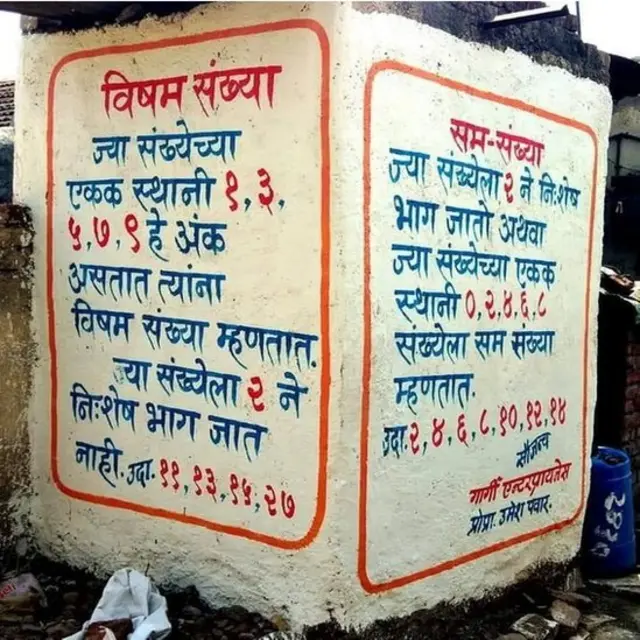 विषम संख्या
ज्या संख्येच्या
एकक स्थानी १, ३,
५, ७, ९ हे अंक
असतात त्यांना
विषम संख्या म्हणतात.
ज्या संख्येला २ ने
निःशेष भाग जात
नाही. उदा. ११, १३, १५, २७
सम-संख्या
ज्या संख्येला २ ने निःशेष
भाग जातो अथवा
ज्या संख्येच्या एकक
स्थानी 0, २, ४, ६, ८
संख्येला सम संख्या
म्हणतात.
उदा. २, ४, ६, ८, १०, १२, १४
सौजन्य
गार्गी एन्टरप्रायजेस
प्रोप्रा. उमेश पवार.